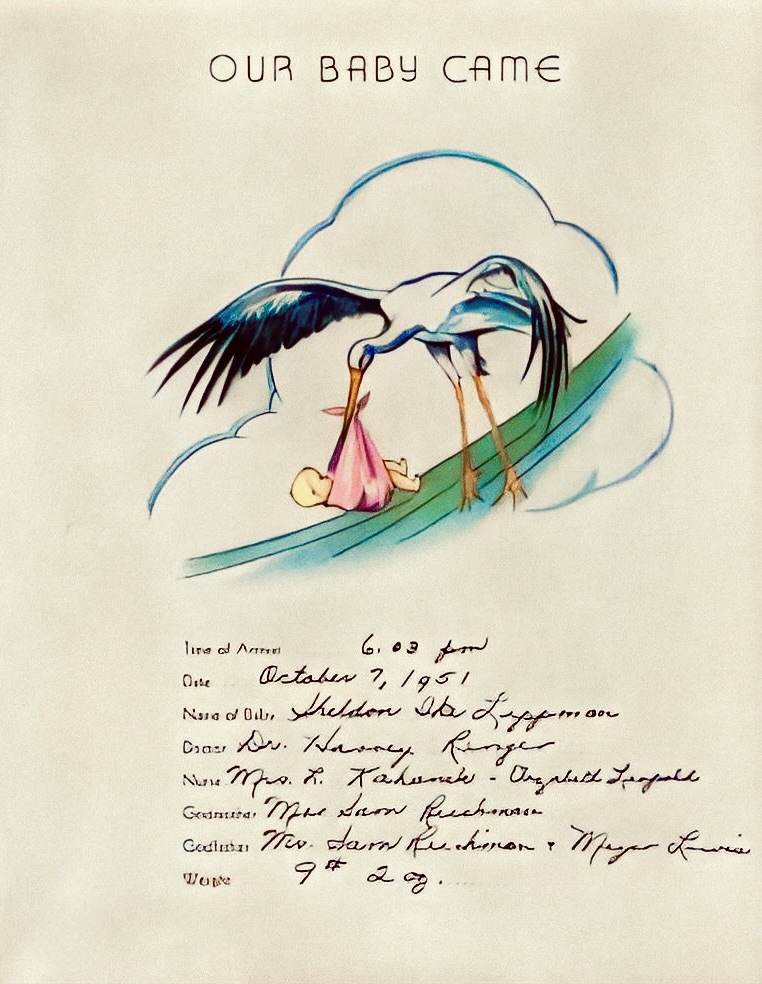 OUR BABY CAME
Time of Arrival 6:03 pm
Date October 7, 1951
Name of Baby Sheldon Ike Lippman
Doctor Dr. Harvey Renger
Nurse Mrs. L. - Elizabeth Leopold
Godmother Mrs Sam Reichman
Godfather Mr. Sam Reichman + Meyer Lewis
Weight 9# 2 oz.